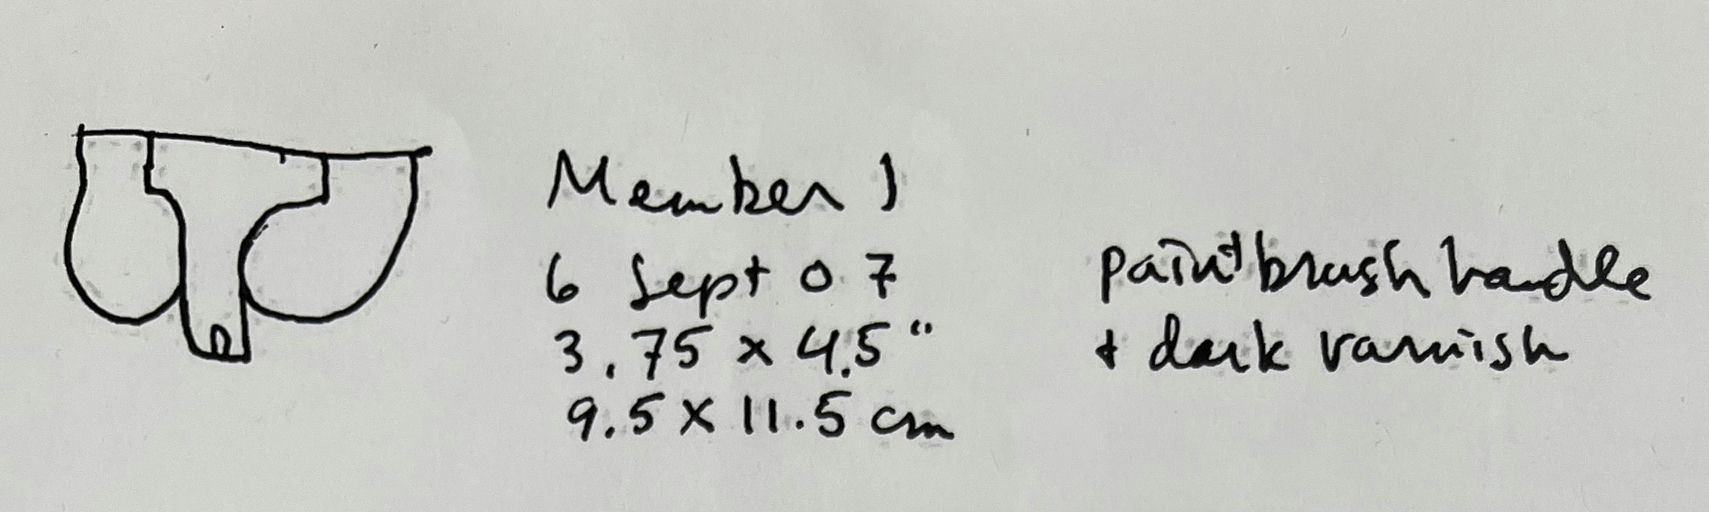 Member 1
6 Sept 07
3.75 x 4.5"
9.5 x 11.5 cm
paintbrush handle
+ dark varnish